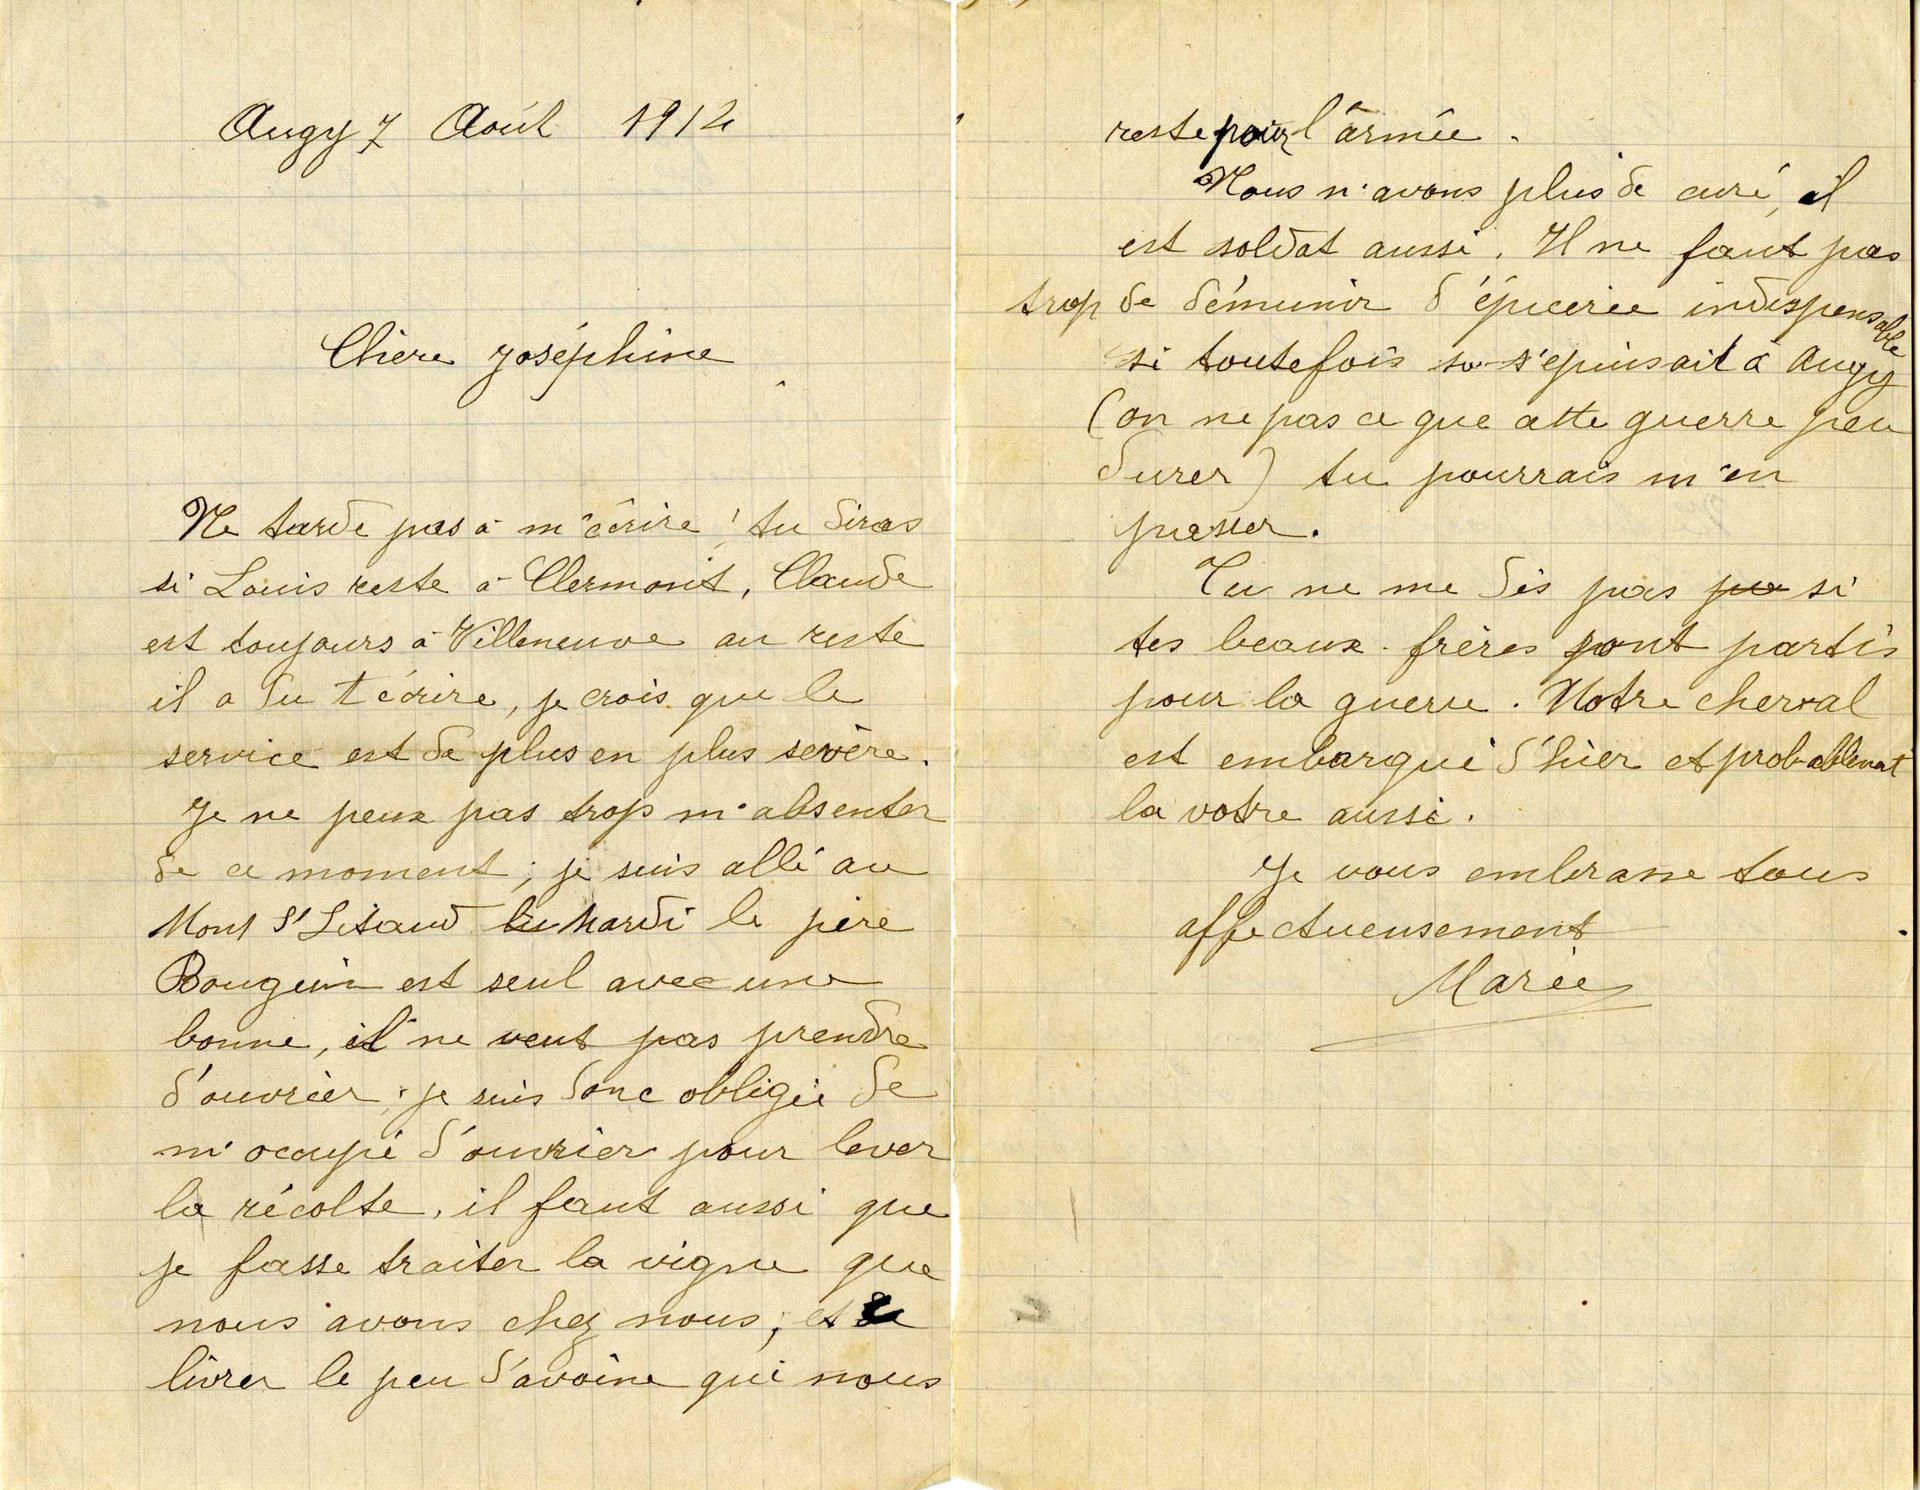 Augy 7 Août 1914
Chère Joséphine
Ne tarde pas à m'écrire ! tu diras
si Louis reste à Clermont, Claude
est toujours à Villeneuve au reste
il a du t'écrire, je crois que le
service est de plus en plus sevère.
Je ne peux pas trop m'absenter
de ce moment ; je suis allé au
Mont St Litaud Mardi le père
Bougerin est seul avec une
bonne, il ne veut pas prendre
d'ouvrier ; je suis donc obligée de
m'occupé d'ouvrier pour lever
la récolte, il faut aussi que
je fasse traiter la vigne que
nous avons chez nous ; et de
livrer le peu d'avoine qui nous
reste pour l'armée.
Nous n'avons plus de curé, il
est soldat aussi. Il ne faut pas
trop de démunir d'épicerie indispensable
si toutefois s'épuisait à Augy
(on ne pas ce que cette guerre peu
durer) tu pourrais m'en
passer.
Tu ne me dis pas si
tes beaux-frères sont partis
pour la guerre. Notre cherval
est embarqué d'hier et probablement
la votre aussi.
Je vous embrasse tous
affectueusement
Marie